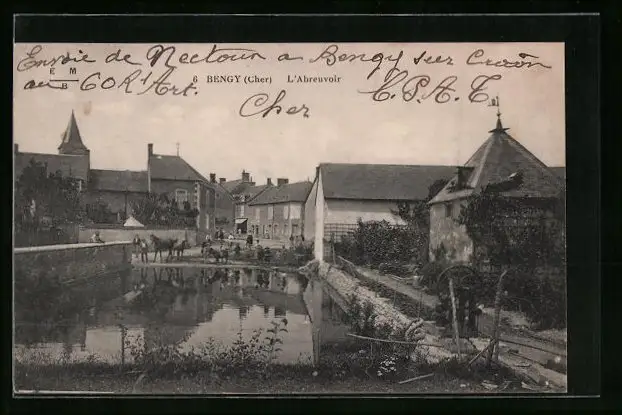 Envoie de Nectoux a Bengy sur Craon
au 60e R'Art. Cher C.P.A.T.
E M
B
6 BENGY (Cher) L'Abreuvoir